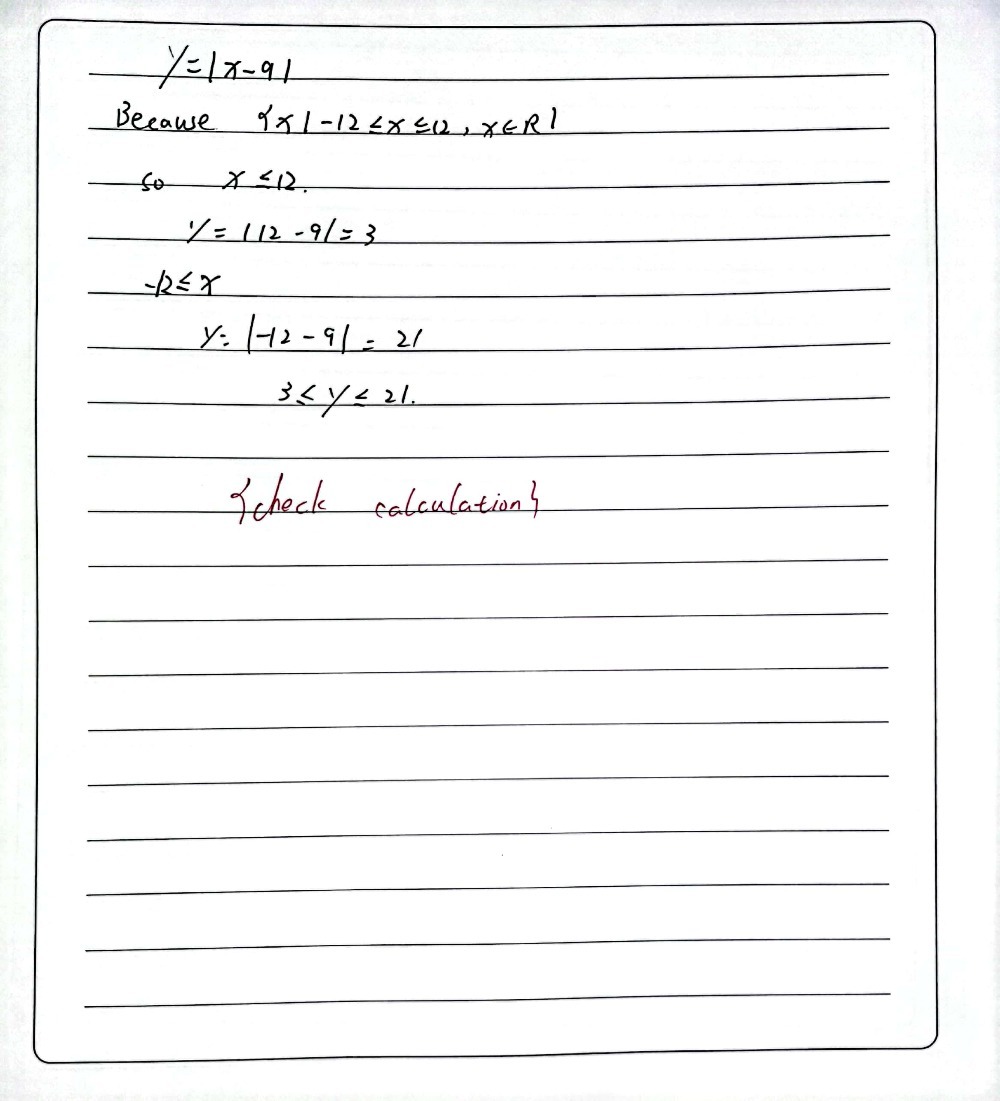 y=|x-9|
Because {x|-12≤x≤12, x∈R}
so x≤12.
y=|12-9|=3
-12≤x
y=|-12-9|=21
3≤y≤21.
{check calculation}